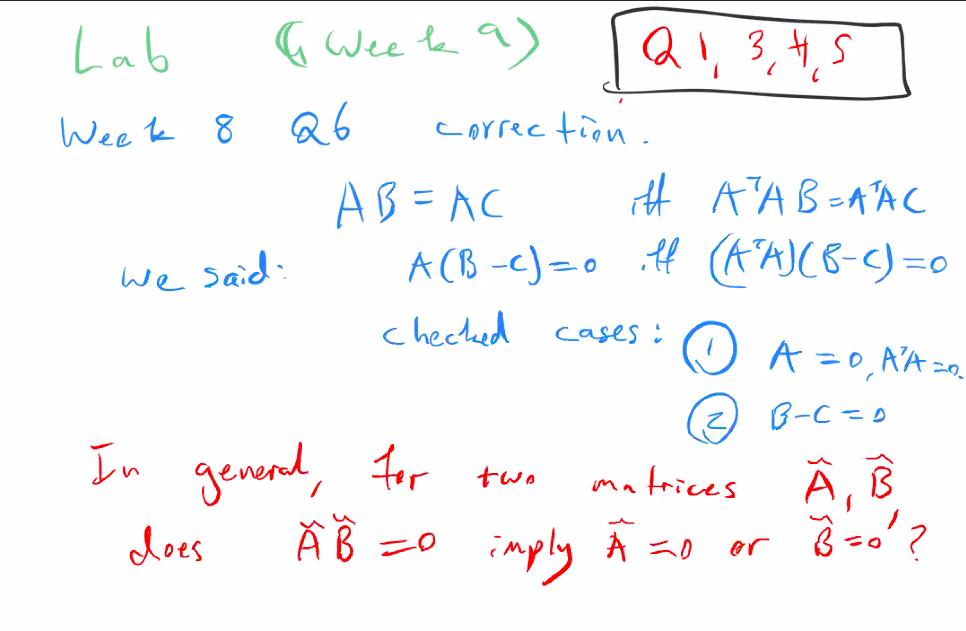 Lab (Week 9)
Q 1, 3, 4, 5
Week 8 Q6 correction.
AB = AC iff AᵀAB = AᵀAC
we said: A(B-C)=0 iff (AᵀA)(B-C)=0
checked cases: ① A = 0, AᵀA = 0.
② B-C = 0
In general, for two matrices Ã, B̃,
does ÃB̃ = 0 imply Ã = 0 or B̃ = 0?